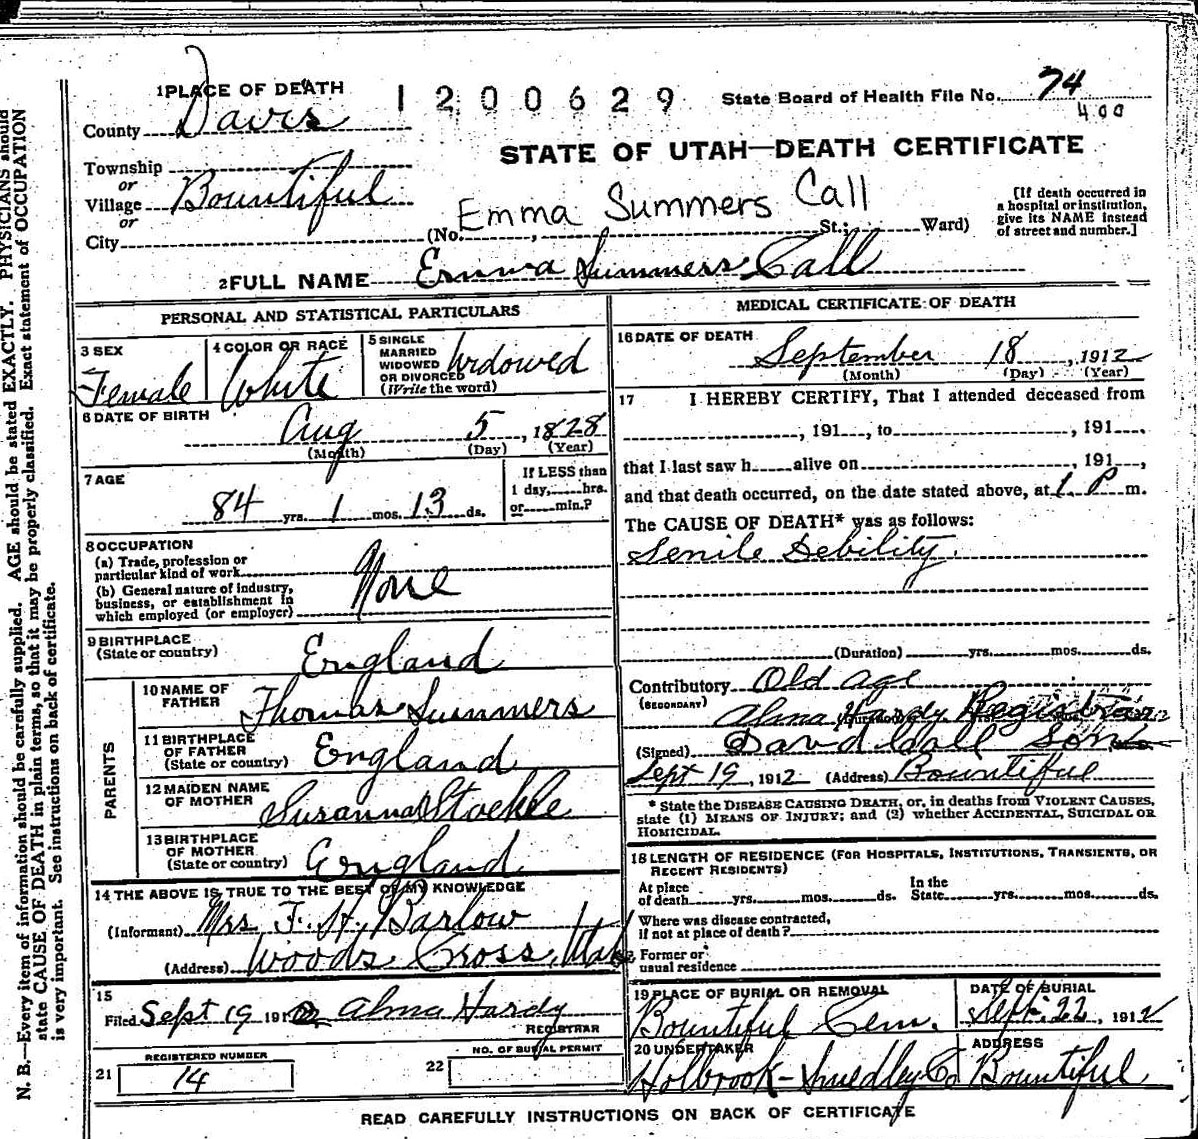 N. B.—Every item of information should be carefully supplied. AGE should be stated EXACTLY. PHYSICIANS should
state CAUSE OF DEATH in plain terms, so that it may be properly classified. Exact statement of OCCUPATION
is very important. See instructions on back of certificate.
1 PLACE OF DEATH
1200629
State Board of Health File No. 74
400
County Davis
STATE OF UTAH—DEATH CERTIFICATE
Township
or
Village Bountiful
or
City (No. , St.; Ward)
Emma Summers Call
[If death occurred in
a hospital or institution,
give its NAME instead
of street and number.]
2 FULL NAME Emma Summers Call
PERSONAL AND STATISTICAL PARTICULARS
3 SEX
Female
4 COLOR OR RACE
White
5 SINGLE
MARRIED
WIDOWED
OR DIVORCED
(Write the word)
Widowed
6 DATE OF BIRTH
Aug 5, 1828
(Month) (Day) (Year)
7 AGE
84 yrs. 1 mos. 13 ds.
If LESS than
1 day, hrs.
or min.?
8 OCCUPATION
(a) Trade, profession or
particular kind of work
(b) General nature of industry,
business, or establishment in
which employed (or employer)
None
9 BIRTHPLACE
(State or country)
England
PARENTS
10 NAME OF
FATHER
Thomas Summers
11 BIRTHPLACE
OF FATHER
(State or country)
England
12 MAIDEN NAME
OF MOTHER
Susanna
13 BIRTHPLACE
OF MOTHER
(State or country)
England
14 THE ABOVE IS TRUE TO THE BEST OF MY KNOWLEDGE
(Informant) Mrs F. H. Barlow
(Address) Woods Cross, Utah
15
Filed Sept 19 191 Alma Hardy
REGISTRAR
REGISTERED NUMBER
21 14
NO. OF BURIAL PERMIT
22
MEDICAL CERTIFICATE OF DEATH
16 DATE OF DEATH
September 18, 1912
(Month) (Day) (Year)
17 I HEREBY CERTIFY, That I attended deceased from
, 191 , to , 191 .
that I last saw h alive on , 191 ,
and that death occurred, on the date stated above, at 1 P m.
The CAUSE OF DEATH* was as follows:
Senile Debility.
(Duration) yrs. mos. ds.
Contributory Old age
(SECONDARY)
Alma Hardy Registrar
(Signed) David Call Son
Sept 19, 1912 (Address) Bountiful
* State the DISEASE CAUSING DEATH, or, in deaths from VIOLENT CAUSES,
state (1) MEANS OF INJURY; and (2) whether ACCIDENTAL, SUICIDAL OR
HOMICIDAL.
18 LENGTH OF RESIDENCE (FOR HOSPITALS, INSTITUTIONS, TRANSIENTS, OR
RECENT RESIDENTS)
At place
of death yrs. mos. ds.
In the
State yrs. mos. ds.
Where was disease contracted,
if not at place of death?
Former or
usual residence
19 PLACE OF BURIAL OR REMOVAL
Bountiful Cem.
DATE OF BURIAL
Sept. 22, 1912
20 UNDERTAKER
Holbrook-Smedley Co
ADDRESS
Bountiful
READ CAREFULLY INSTRUCTIONS ON BACK OF CERTIFICATE